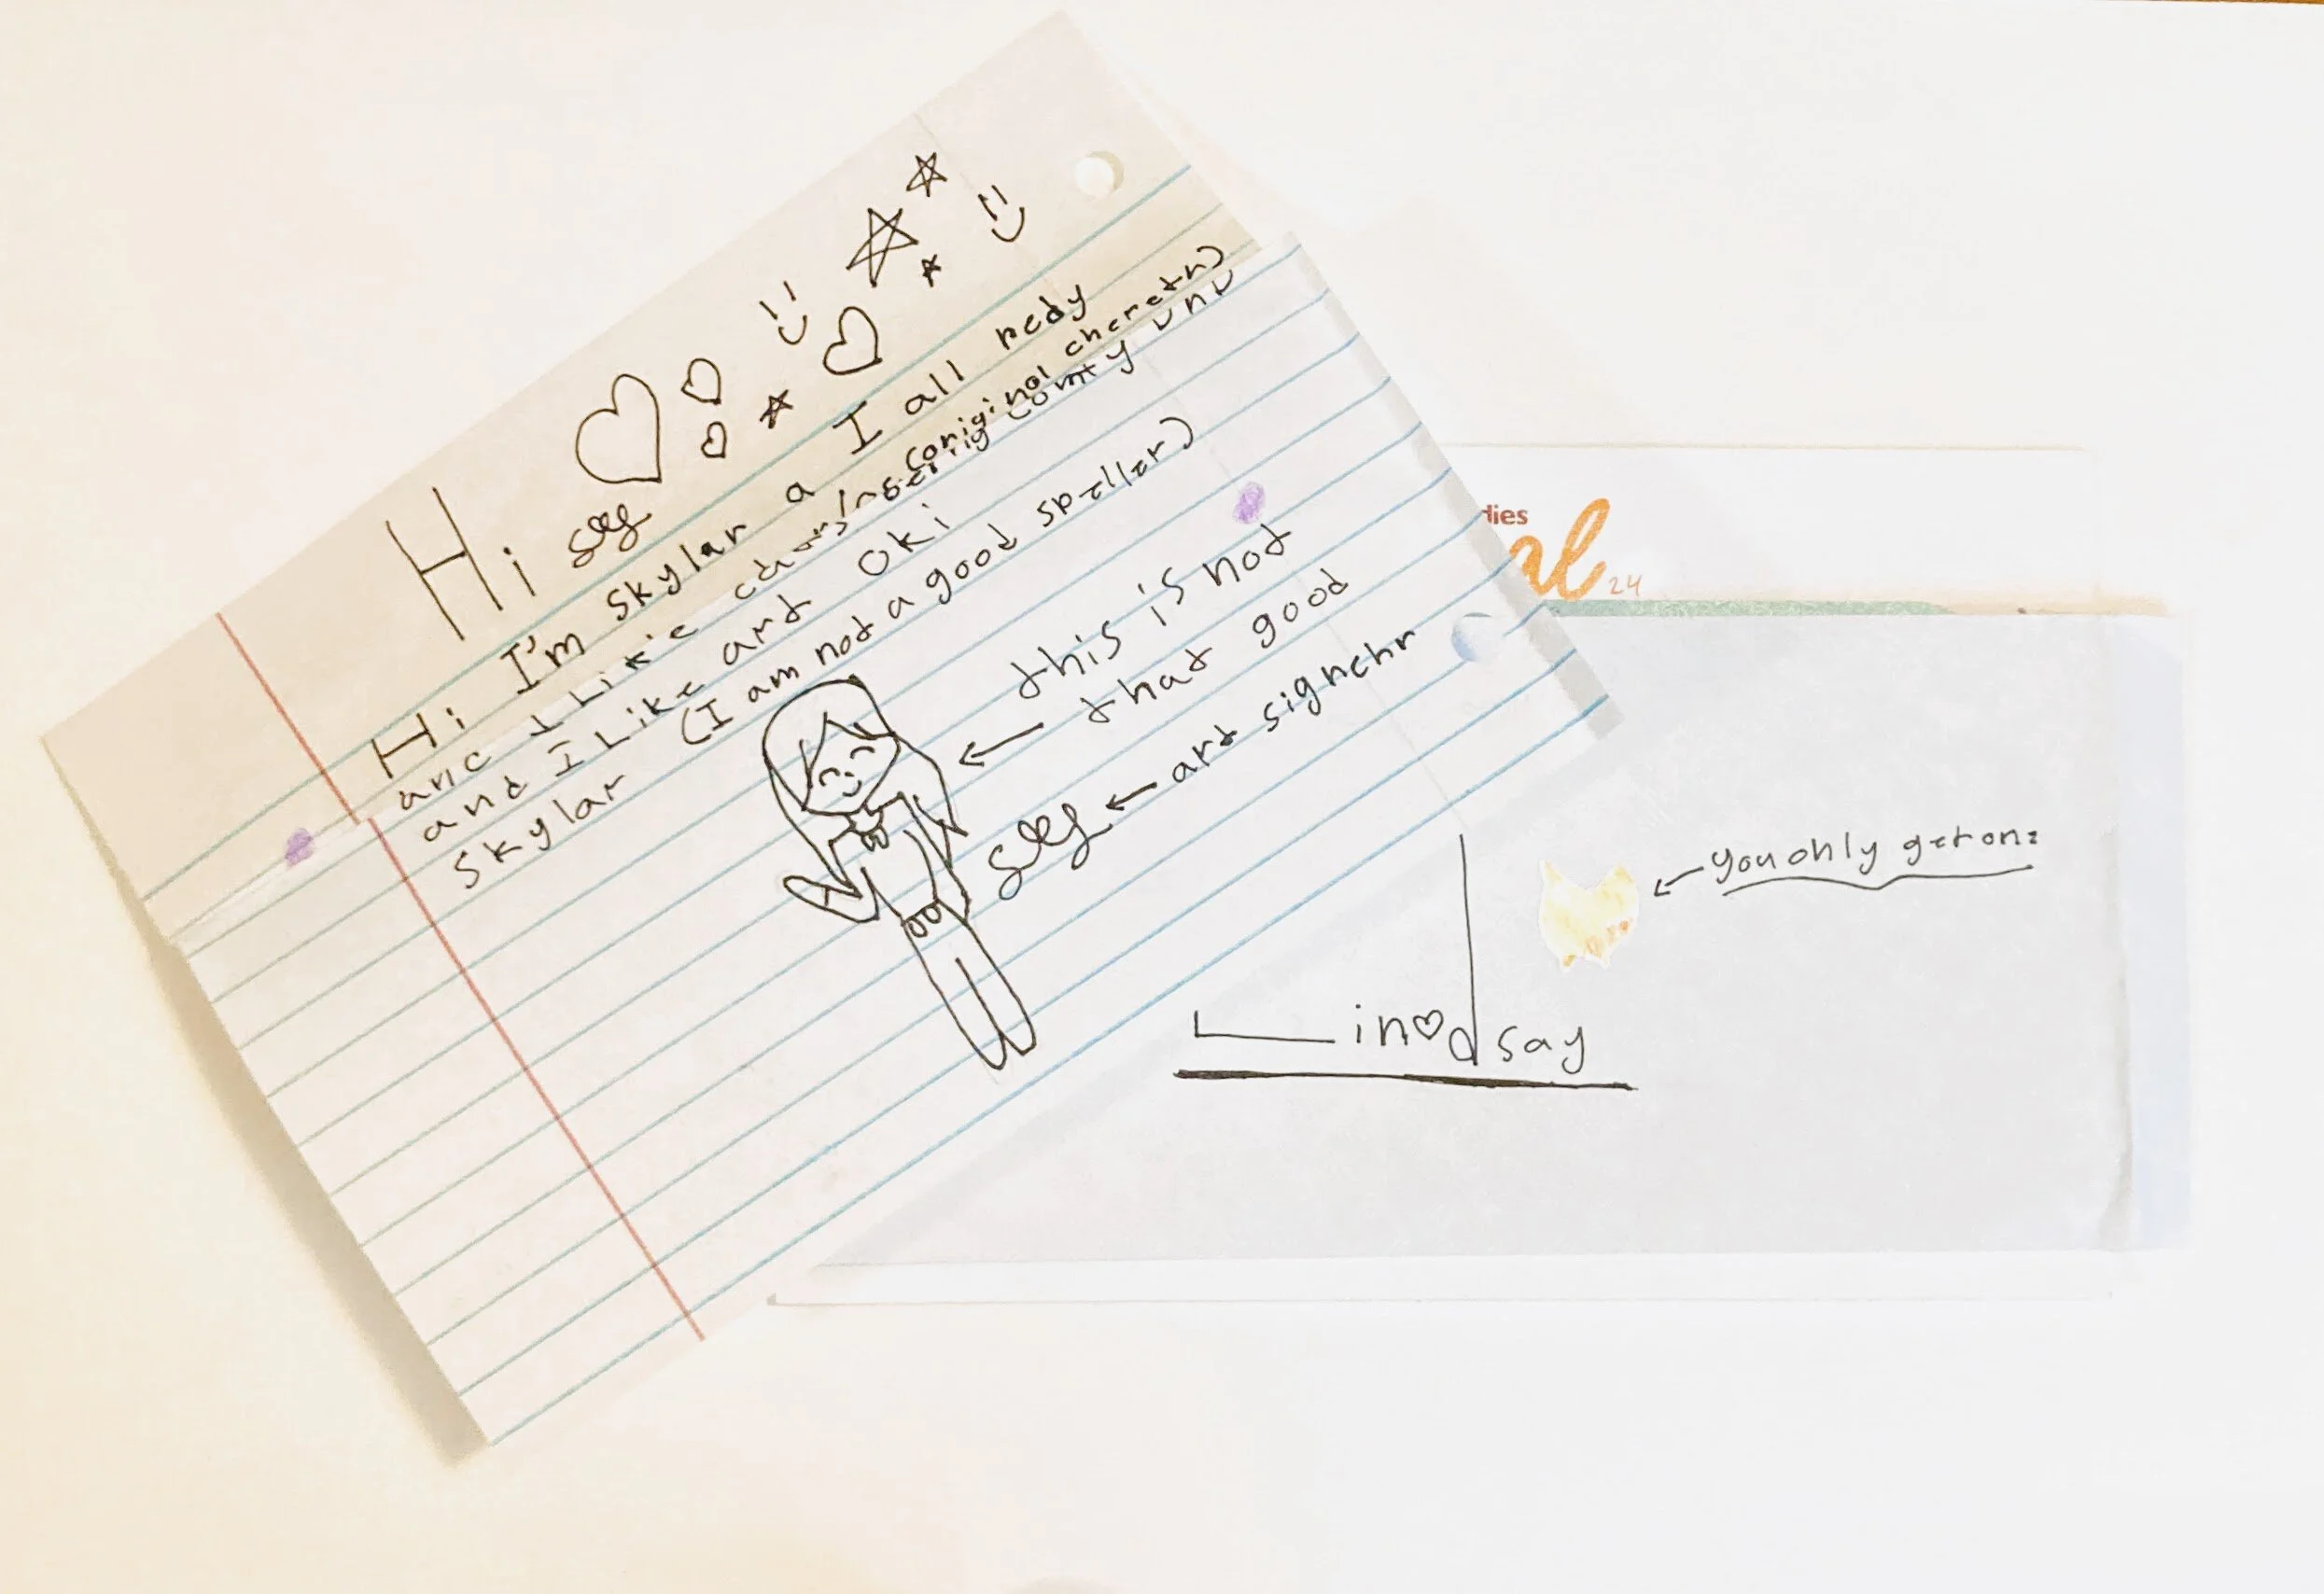 Hi
Hi I'm skylar a I all redy
(original
and I Like art oki
skylar (I am not a good speller)
this is not
that good
art signehr
dies
al 24
you only get one
Lindsay